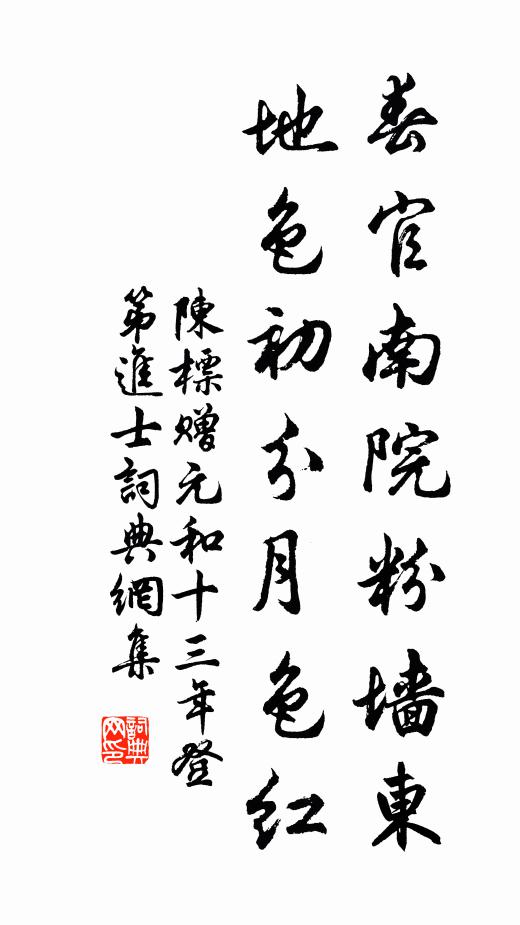 春官南院粉墙東
地色初分月色紅
陳標赠元和十三年登
第進士詞典網集
詞典网印